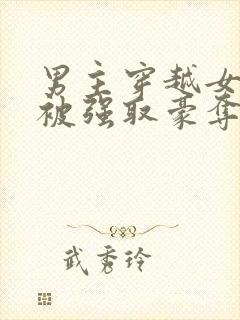 男主穿越女
被强取豪夺
武秀玲